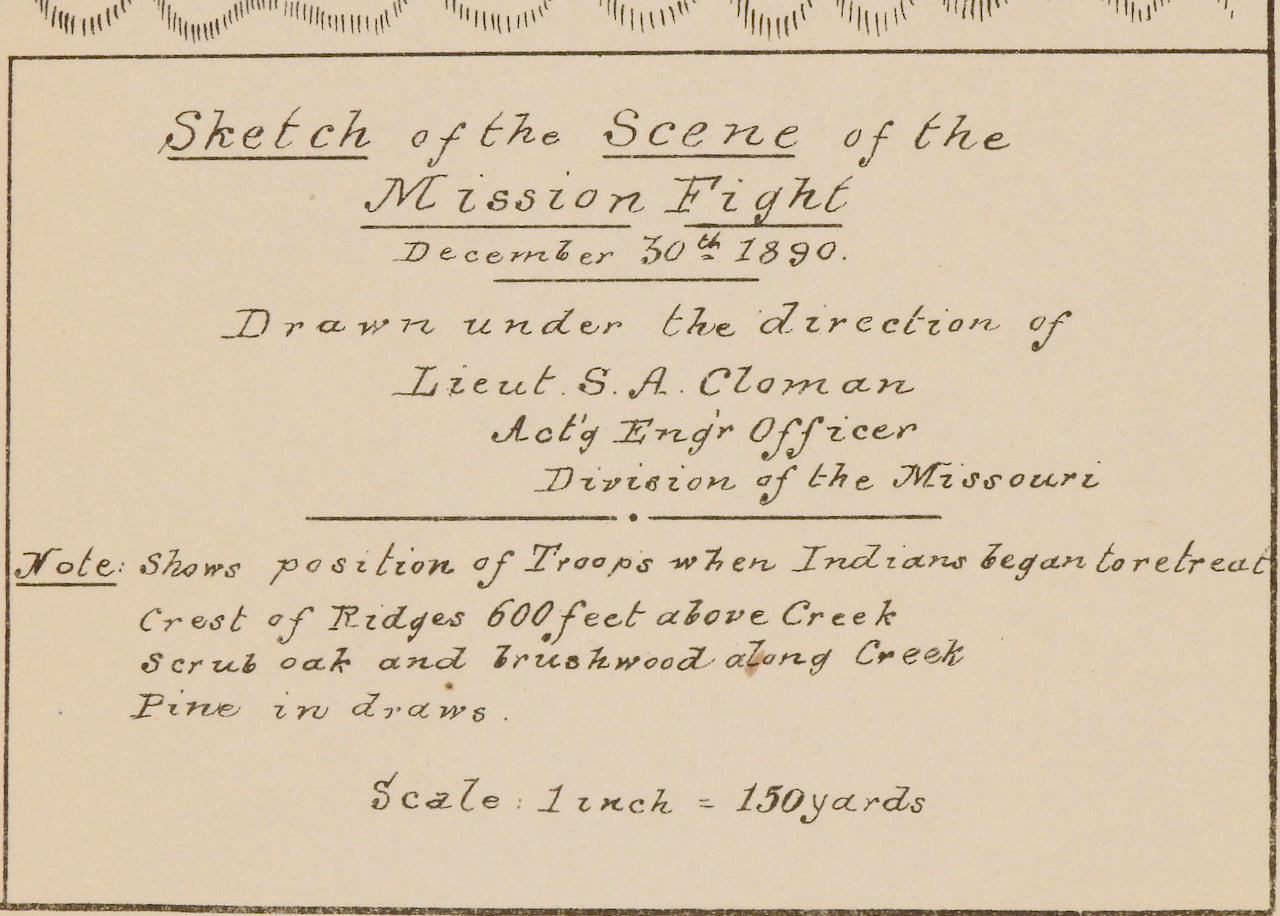 Sketch of the Scene of the
Mission Fight
December 30th 1890.
Drawn under the direction of
Lieut. S. A. Cloman
Act'g Eng'r Officer
Division of the Missouri
Note: Shows position of Troops when Indians began to retreat
Crest of Ridges 600 feet above Creek
Scrub oak and brushwood along Creek
Pine in draws.
Scale: 1 inch = 150 yards